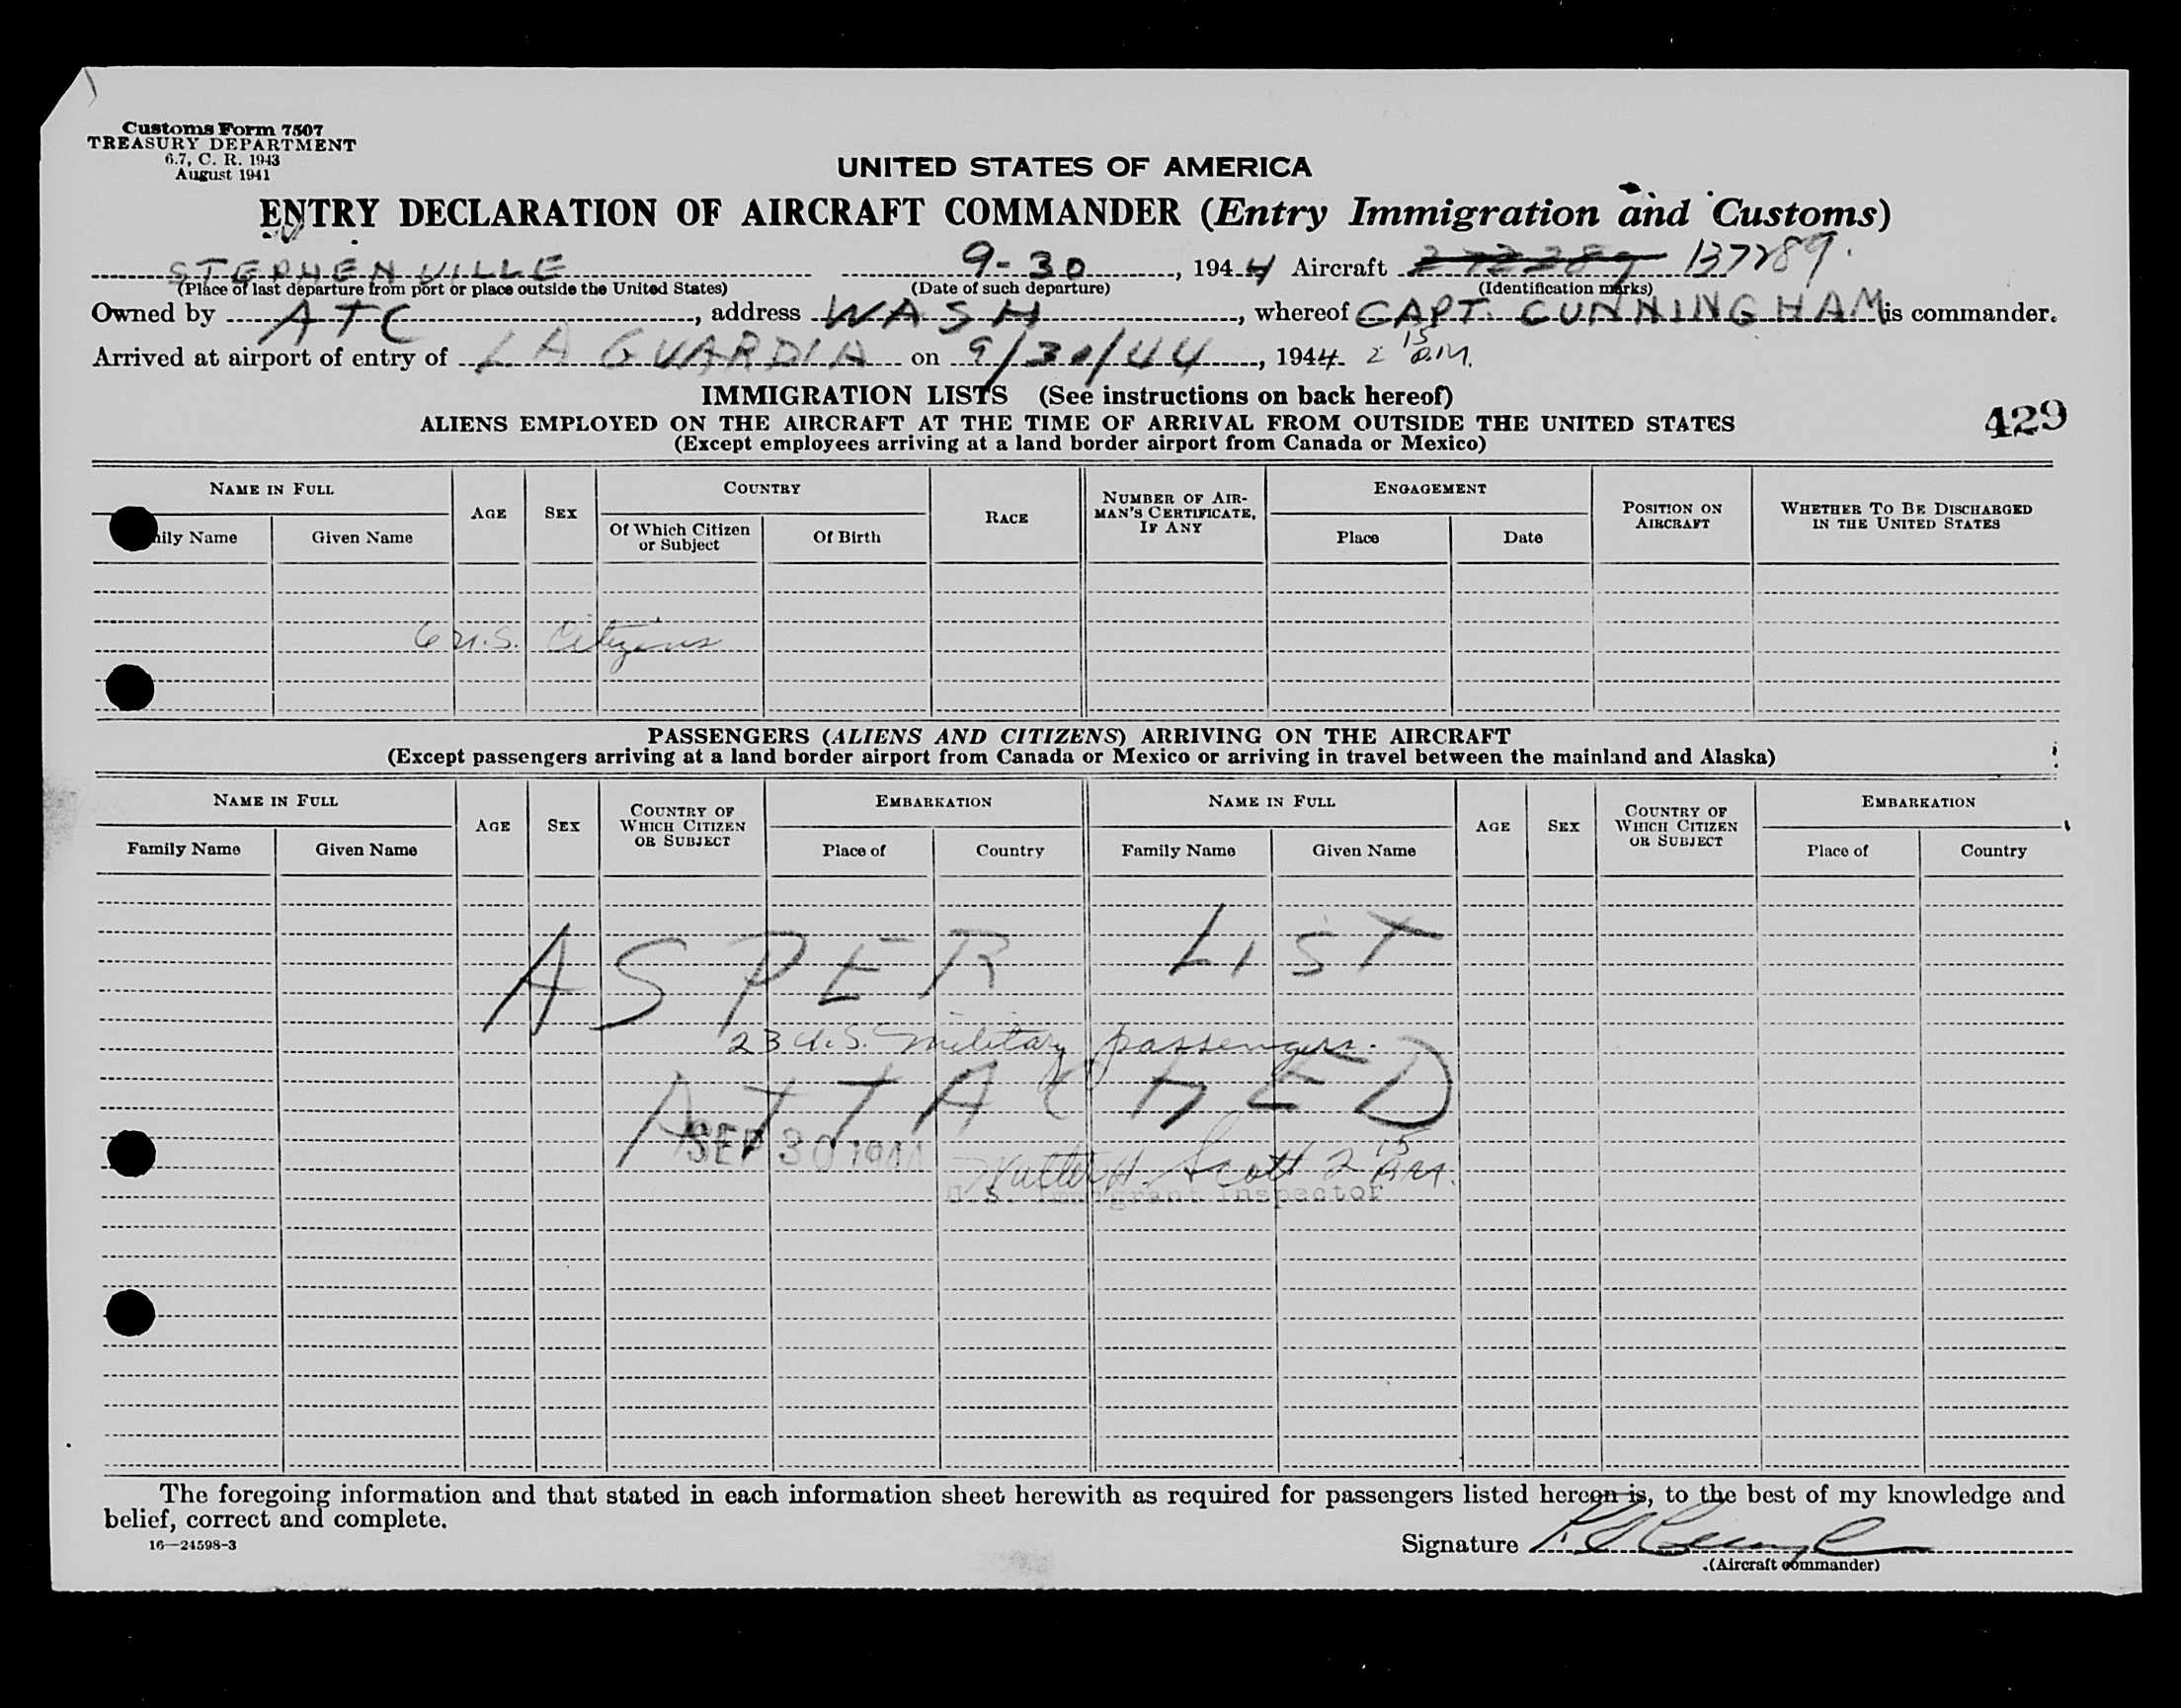 Customs Form 7507
TREASURY DEPARTMENT
6.7, C. R. 1943
August 1941
UNITED STATES OF AMERICA
ENTRY DECLARATION OF AIRCRAFT COMMANDER (Entry Immigration and Customs)
STEPHENVILLE 9-30, 1944 Aircraft 137289.
(Place of last departure from port or place outside the United States) (Date of such departure) (Identification marks)
Owned by ATC, address WASH, whereof CAPT. CUNNINGHAM is commander.
Arrived at airport of entry of LA GUARDIA on 9/30/44, 1944. 2 15 P.M.
IMMIGRATION LISTS (See instructions on back hereof)
ALIENS EMPLOYED ON THE AIRCRAFT AT THE TIME OF ARRIVAL FROM OUTSIDE THE UNITED STATES
429
(Except employees arriving at a land border airport from Canada or Mexico)
NAME IN FULL AGE SEX COUNTRY RACE NUMBER OF AIR-MAN'S CERTIFICATE, IF ANY ENGAGEMENT POSITION ON AIRCRAFT WHETHER TO BE DISCHARGED IN THE UNITED STATES
Given Name Of Which Citizen or Subject Of Birth Place Date
6 U.S. Citizens
PASSENGERS (ALIENS AND CITIZENS) ARRIVING ON THE AIRCRAFT
(Except passengers arriving at a land border airport from Canada or Mexico or arriving in travel between the mainland and Alaska)
NAME IN FULL AGE SEX COUNTRY OF WHICH CITIZEN OR SUBJECT EMBARKATION NAME IN FULL AGE SEX COUNTRY OF WHICH CITIZEN OR SUBJECT EMBARKATION
Family Name Given Name Place of Country Family Name Given Name Place of Country
AS PER LIST
23 U.S. military passengers.
ATTACHED
SEP 30 1944 Walter H. Scott 2 15 P.M.
U.S. Immigrant Inspector
The foregoing information and that stated in each information sheet herewith as required for passengers listed hereon is, to the best of my knowledge and
belief, correct and complete.
16—24598-3
Signature
(Aircraft commander)